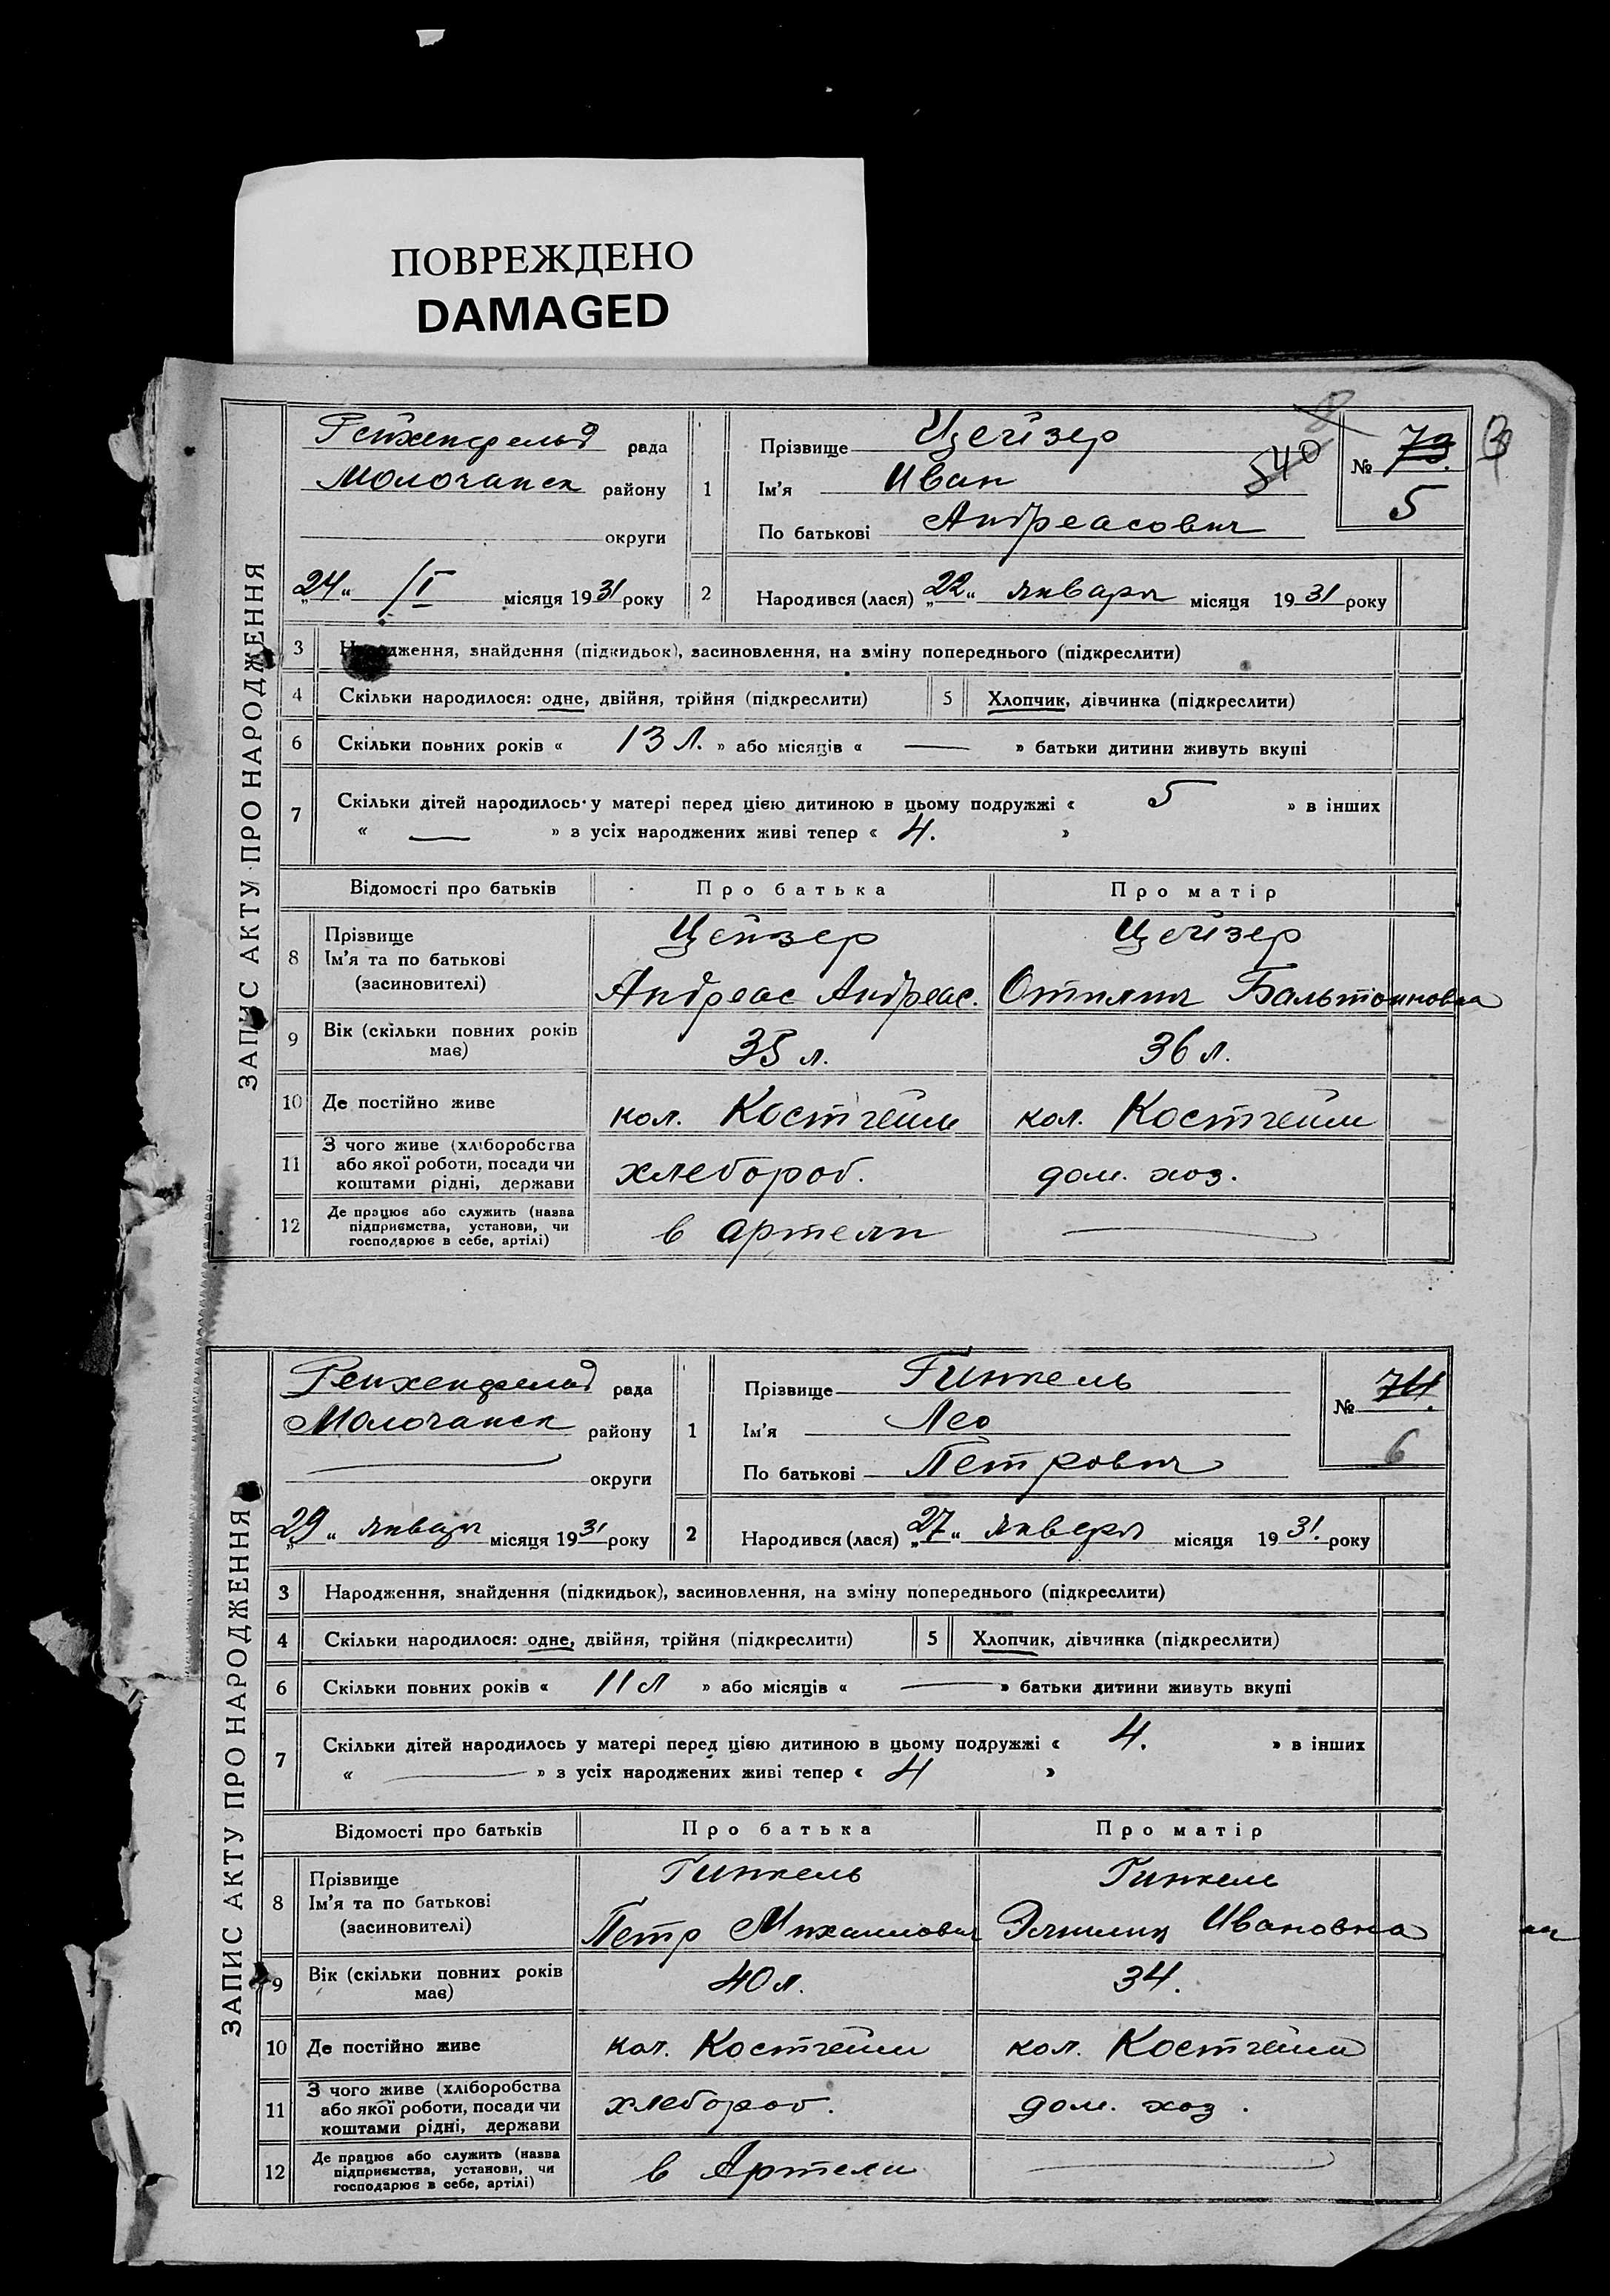 ПОВРЕЖДЕНО
DAMAGED
ЗАПИС АКТУ ПРО НАРОДЖЕННЯ
Рейхенфельд рада
Молочанск району
округи
„24“ /I місяця 1931 року
1
Прізвище Цейзер
Ім'я Иван
По батькові Андреасович
540
№ 73.
5
2 Народився (лася) „22“ января місяця 1931 року
3 Народження, знайдення (підкидьок), засиновлення, на зміну попереднього (підкреслити)
4 Скільки народилося: одне, двійня, трійня (підкреслити) 5 Хлопчик, дівчинка (підкреслити)
6 Скільки повних років « 13 л. » або місяців « — » батьки дитини живуть вкупі
7 Скільки дітей народилось у матері перед цією дитиною в цьому подружжі « 5 » в інших
« — » з усіх народжених живі тепер « 4. »
Відомості про батьків Про батька Про матір
8 Прізвище Цейзер Цейзер
Ім'я та по батькові
(засиновителі) Андреас Андреас. Отилия
9 Вік (скільки повних років має) 35 л. 36 л.
10 Де постійно живе кол. Костгейм кол. Костгейм
11 З чого живе (хліборобства
або якої роботи, посади чи хлебороб. дом. хоз.
коштами рідні, держави
12 Де працює або служить (назва
підприємства, установи, чи в артели —
господарює в себе, артілі)
ЗАПИС АКТУ ПРО НАРОДЖЕННЯ
Рейхенфельд рада
Молочанск району
— округи
„29“ января місяця 1931 року
1
Прізвище Гинкель
Ім'я Лео
По батькові Петрович
№ 74.
6
2 Народився (лася) „27“ января місяця 1931. року
3 Народження, знайдення (підкидьок), засиновлення, на зміну попереднього (підкреслити)
4 Скільки народилося: одне, двійня, трійня (підкреслити) 5 Хлопчик, дівчинка (підкреслити)
6 Скільки повних років « 11 л » або місяців « — » батьки дитини живуть вкупі
7 Скільки дітей народилось у матері перед цією дитиною в цьому подружжі « 4. » в інших
« — » з усіх народжених живі тепер « 4 »
Відомості про батьків Про батька Про матір
8 Прізвище Гинкель Гинкель
Ім'я та по батькові
(засиновителі) Петр Михаилович Ивановна
9 Вік (скільки повних років має) 40 л. 34.
10 Де постійно живе кол. Костгейм кол. Костгейм
11 З чого живе (хліборобства
або якої роботи, посади чи хлебороб. дом. хоз.
коштами рідні, держави
12 Де працює або служить (назва
підприємства, установи, чи в Артели —
господарює в себе, артілі)